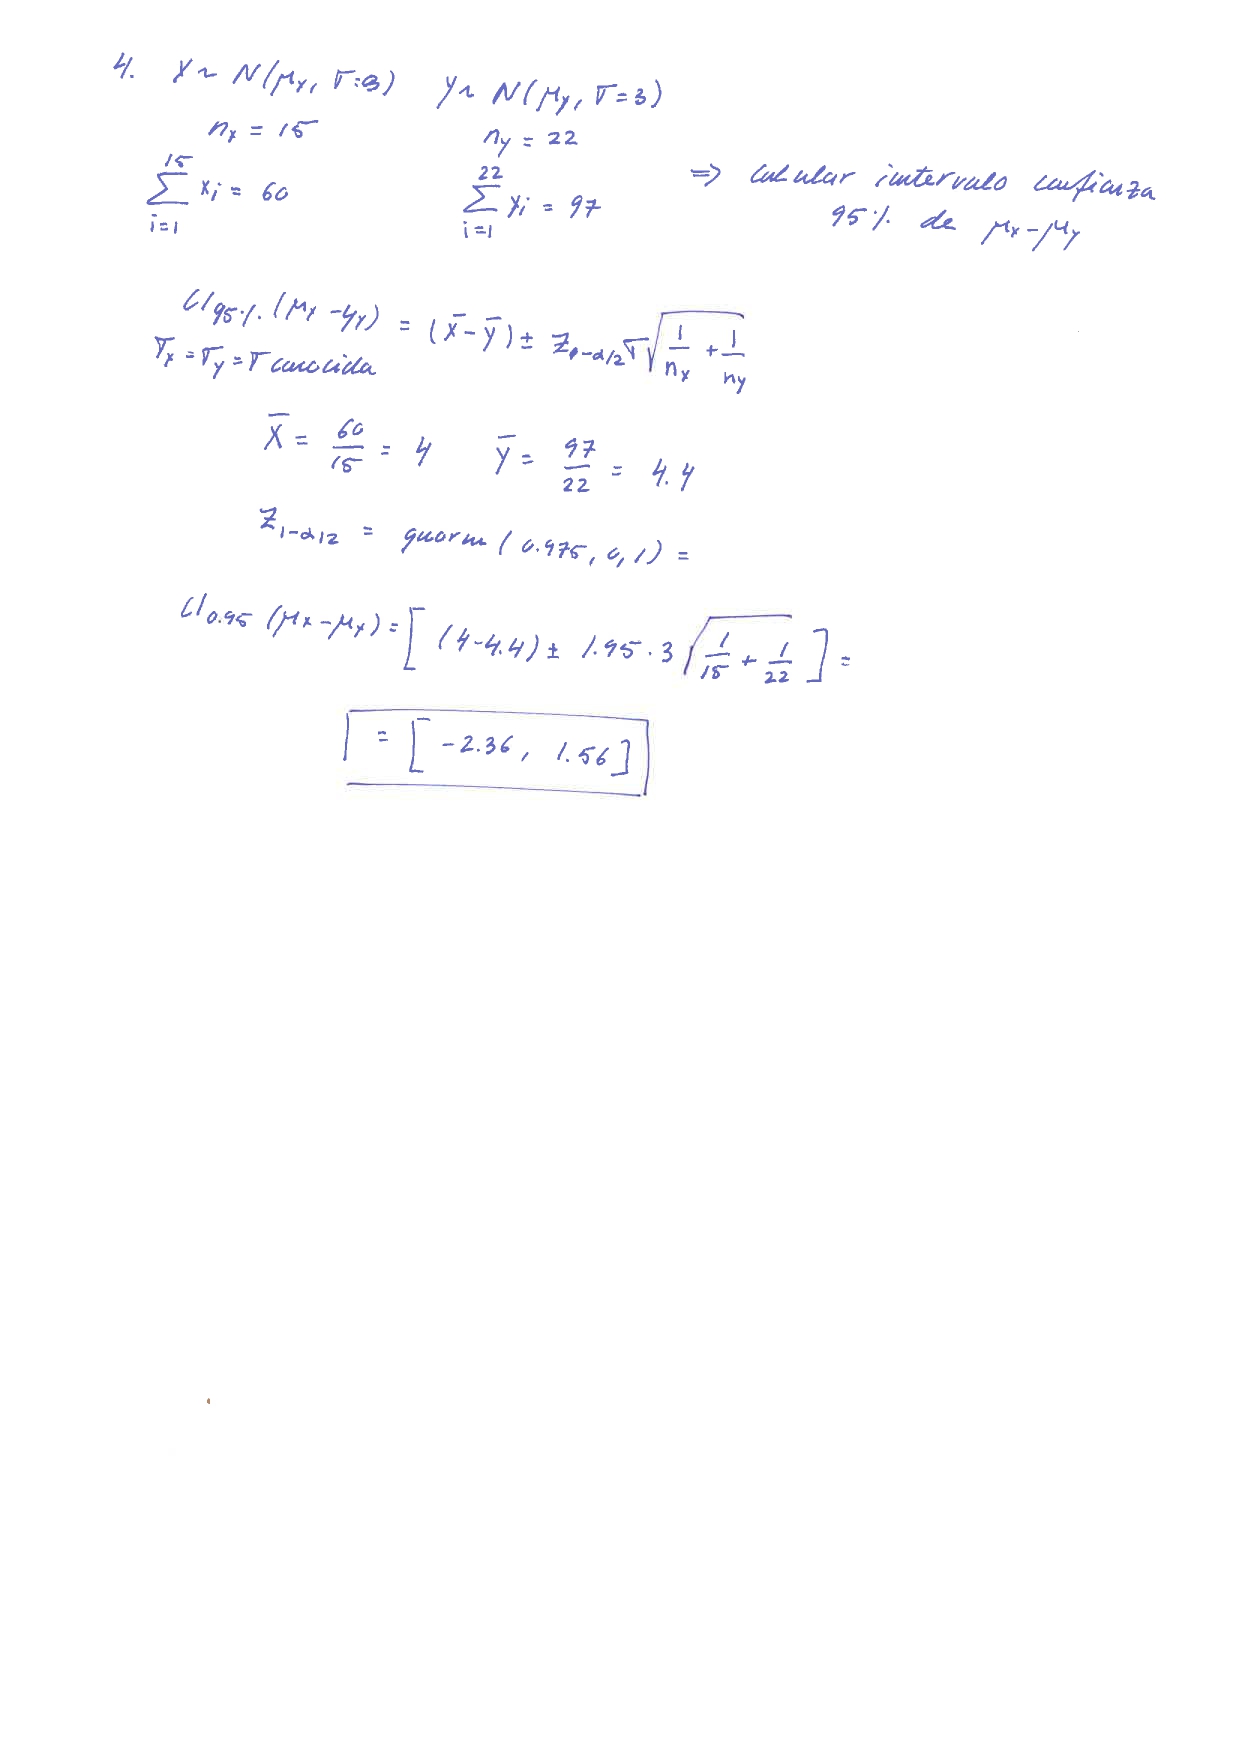 4. X ~ N(μx, σ=3) Y ~ N(μy, σ=3)
nx = 15 ny = 22
∑_{i=1}^{15} xi = 60 ∑_{i=1}^{22} yi = 97 ⇒ calcular intervalo confianza
95% de μx-μy
CI95%(μx-μy) = (X̄-Ȳ) ± Z1-α/2 σ √(1/nx + 1/ny)
σx = σy = σ conocida
X̄ = 60/15 = 4 Ȳ = 97/22 = 4.4
Z1-α/2 = qnorm(0.975, 0, 1) =
CI0.95 (μx-μy) = [(4-4.4) ± 1.95 · 3 √(1/15 + 1/22)] =
= [-2.36, 1.56]